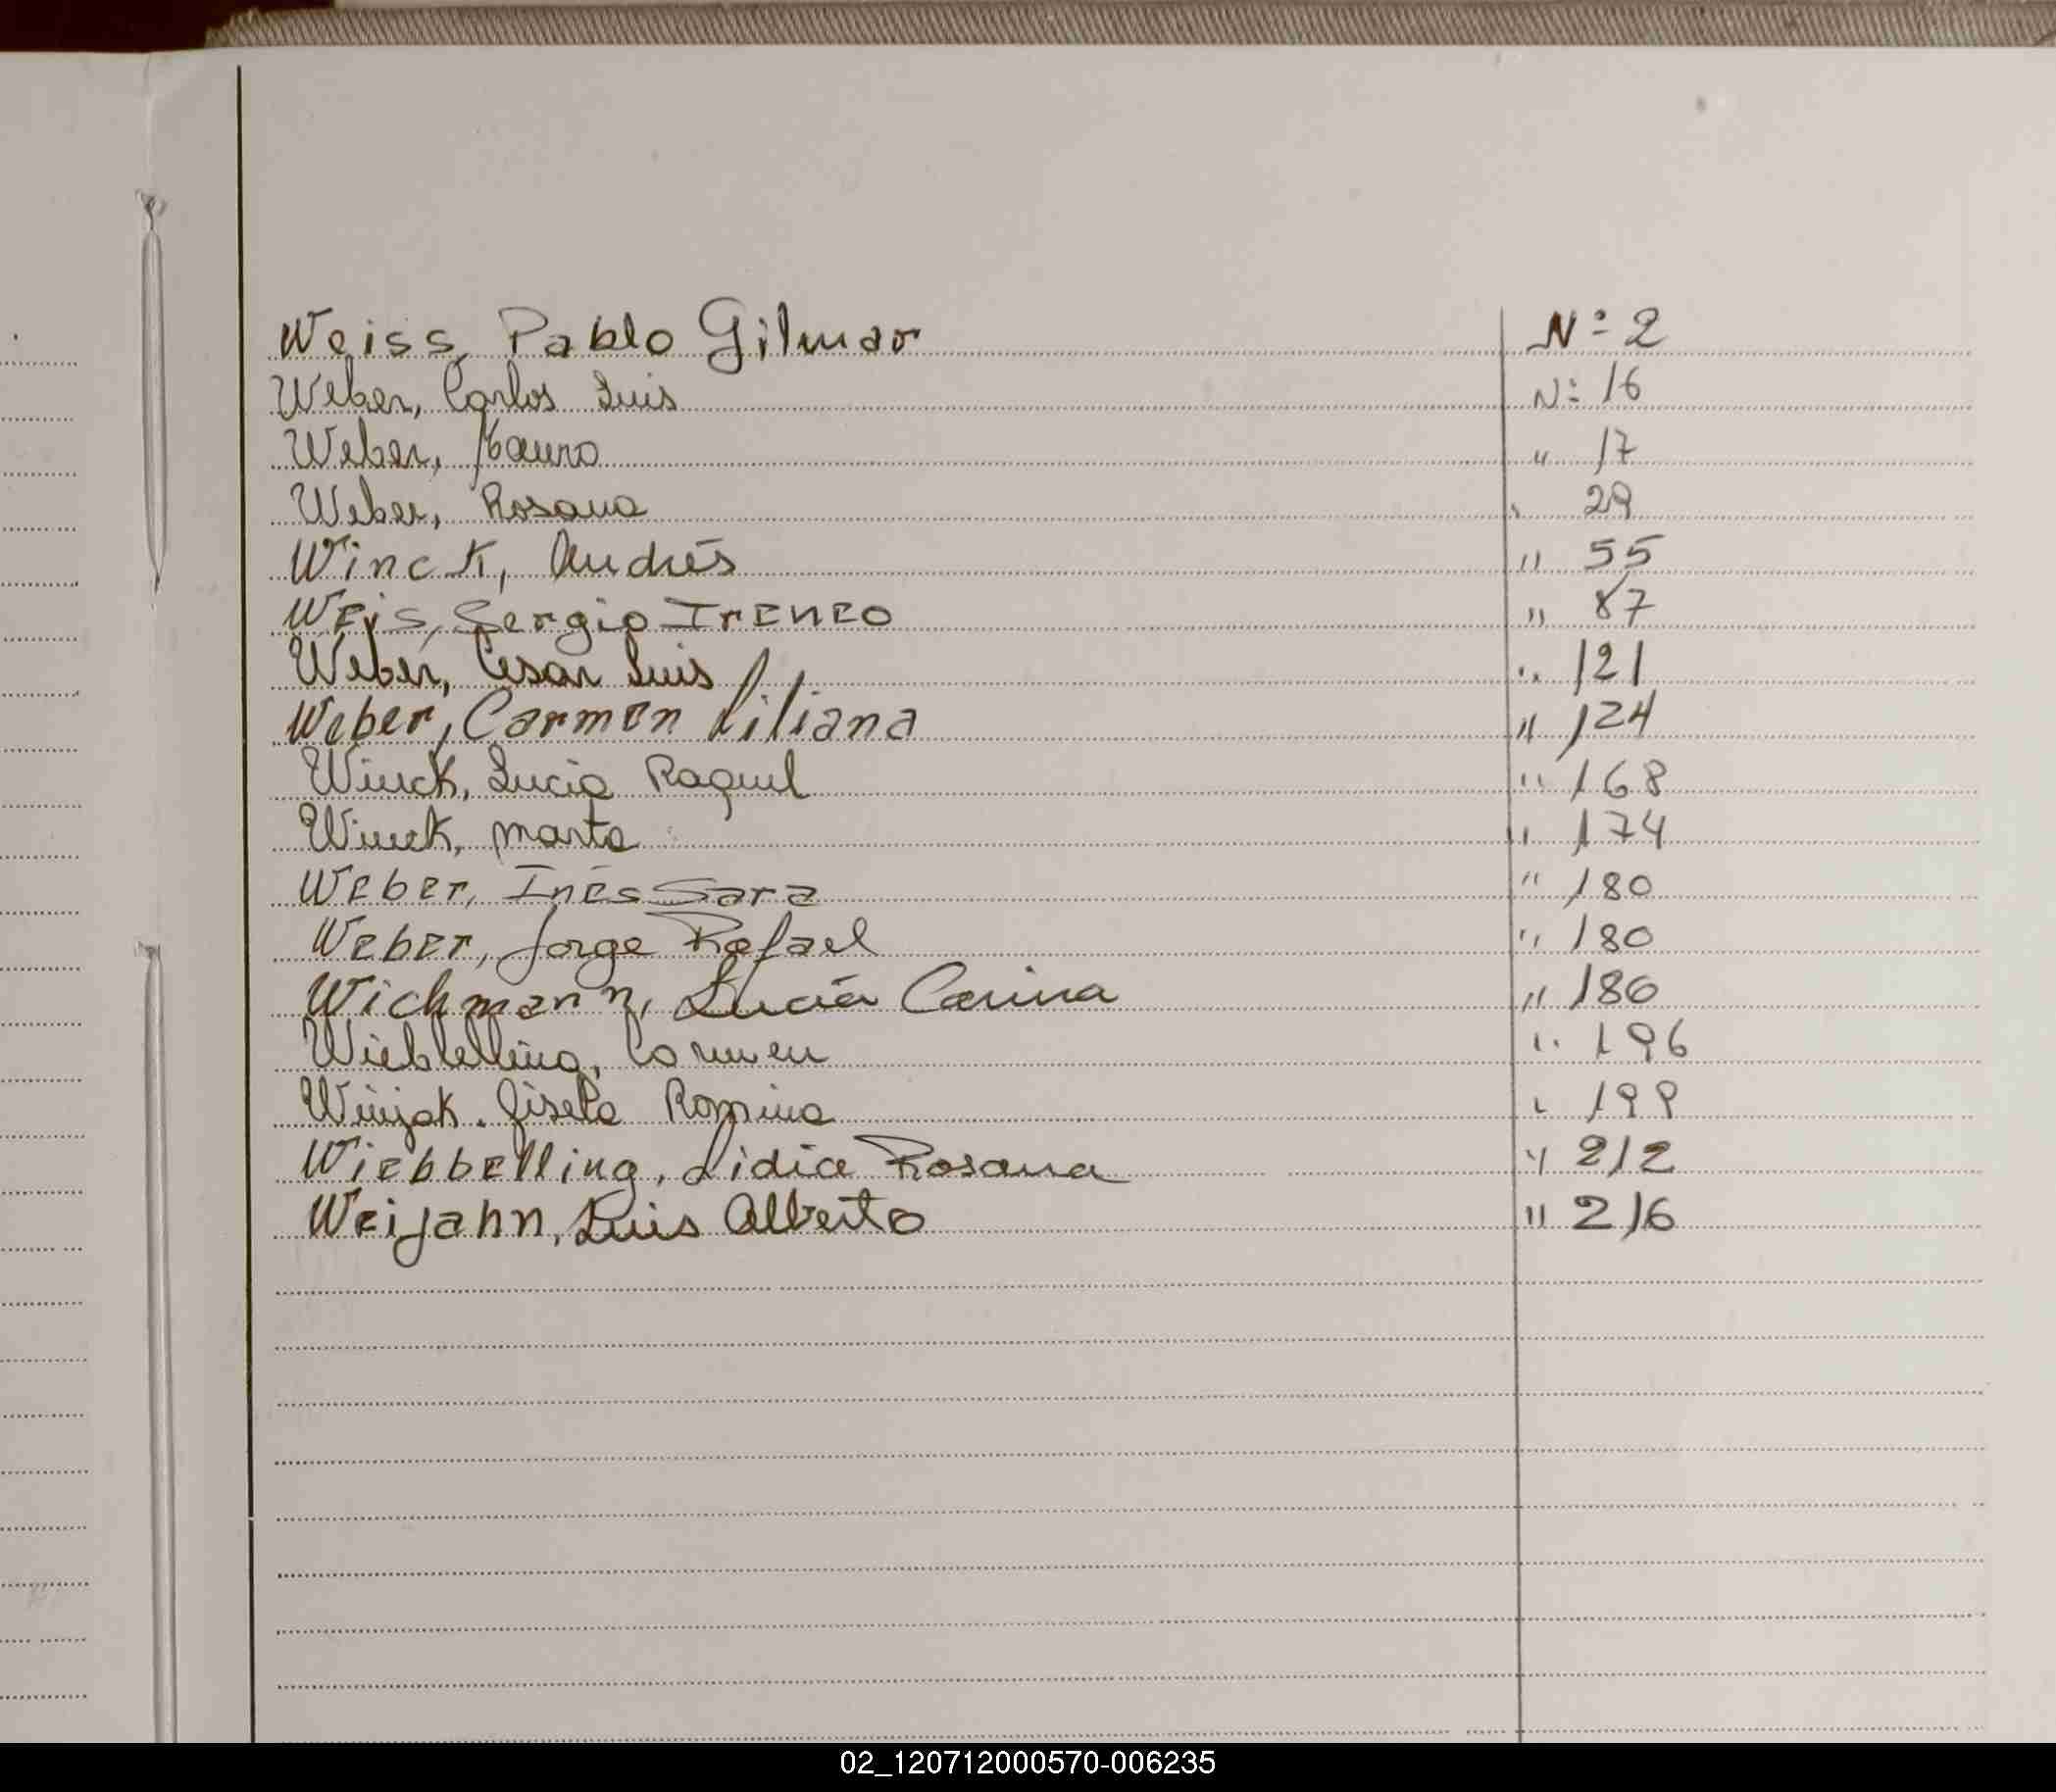 Weiss, Pablo Gilmar N° 2
Weber, Carlos Luis N° 16
Weber, Mauro " 17
Weber, Rosana " 29
Winck, Andrés " 55
Weis, Sergio Ireneo " 87
Weber, Cesar Luis " 121
Weber, Carmen Liliana " 124
Winck, Lucia Raquel " 168
Winck, Marta " 174
Weber, Inés Sara " 180
Weber, Jorge Rafael " 180
Wichmann, Lucía Carina " 186
Carmen " 196
Gisela Romina " 199
Wiebbelling, Lidia Rosana " 212
Weijahn, Luis Alberto " 216
02_120712000570-006235